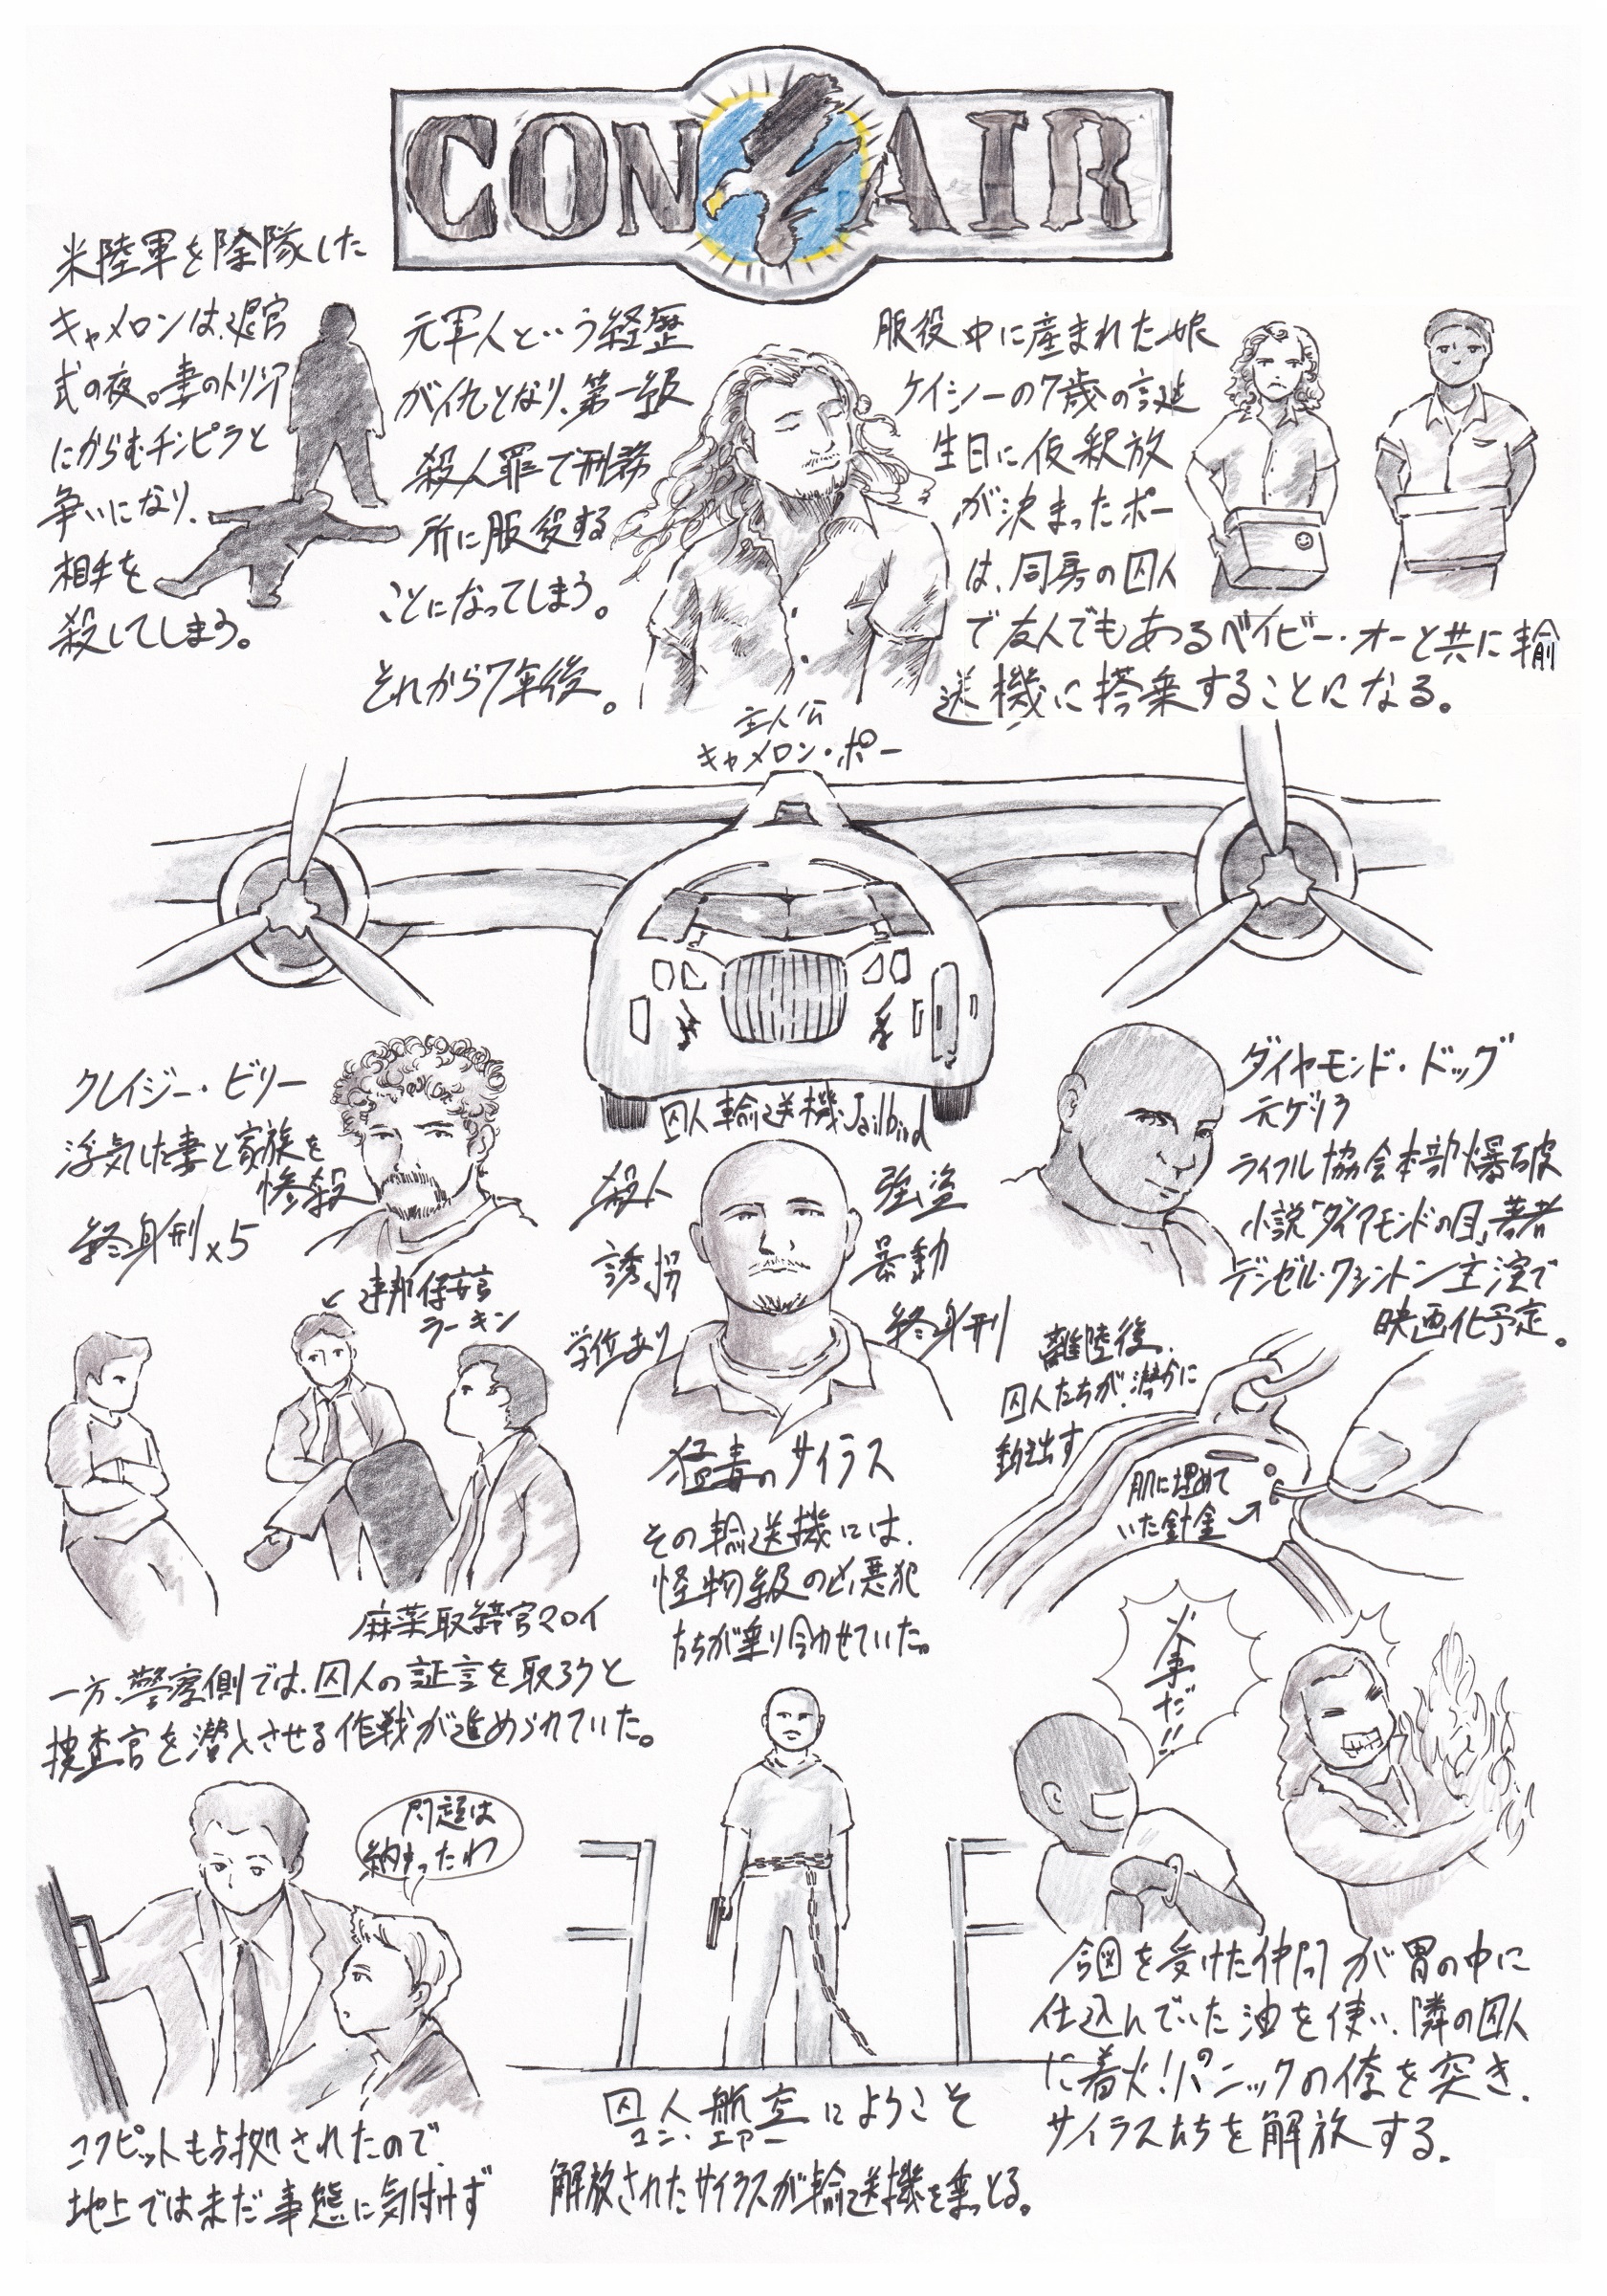 CON AIR
米陸軍を除隊した
キャメロンは、退官
式の夜。妻のトリシア
にからむチンピラと
争いになり、
相手を
殺してしまう。
元軍人という経歴
が仇となり、第一級
殺人罪で刑務
所に服役する
ことになってしまう。
それから7年後。
主人公
キャメロン・ポー
服役中に産まれた娘
ケイシーの7歳の誕
生日に仮釈放
が決まったポー
は、同房の囚人
で友人でもあるベイビー・オーと共に輸
送機に搭乗することになる。
囚人輸送機Jailbird
クレイジー・ビリー
浮気した妻と家族を
惨殺
終身刑×5
殺人
誘拐
学位あり
強盗
暴動
終身刑
猛毒のサイラス
その輸送機には、
怪物級の凶悪犯
たちが乗り合わせていた。
ダイヤモンド・ドッグ
元ゲリラ
ライフル協会本部爆破
小説「ダイアモンドの目」著者
デンゼル・ワシントン主演で
映画化予定。
連邦保安官
ラーキン
麻薬取締官マロイ
一方、警察側では、囚人の証言を取ろうと
捜査官を潜入させる作戦が進められていた。
離陸後、
囚人たちが、潜かに
動き出す
肌に埋めて
いた針金
火事だ!!
合図を受けた仲間が胃の中に
仕込んでいた油を使い、隣の囚人
に着火!パニックの隙を突き、
サイラスたちを解放する。
囚人航空にようこそ
コン・エアー
解放されたサイラスが輸送機を乗っとる。
問題は
納まったわ
コクピットも占拠されたので、
地上では未だ事態に気付けず